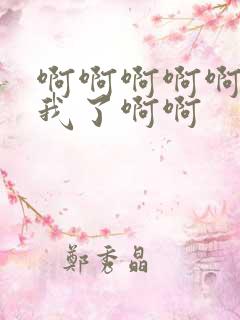 啊啊啊啊啊
我了啊啊
鄭秀晶